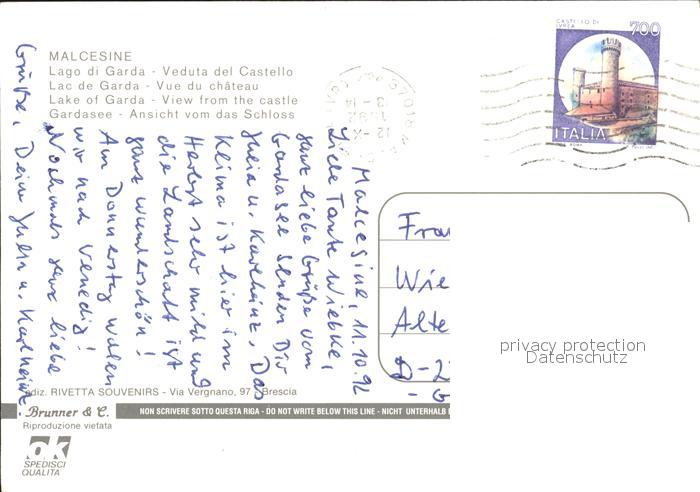 MALCESINE
Lago di Garda - Veduta del Castello
Lac de Garda - Vue du château
Lake of Garda - View from the castle
Gardasee - Ansicht vom das Schloss
CASTELLO DI
IVREA
700
ITALIA
Malcesine, 11.10.92
Liebe Tante Wiebke,
ganz liebe Grüße vom
Gardasee senden Dir
Julia u. Karlheinz. Das
Klima ist hier im
Herbst sehr mild und
die Landschaft ist
ganz wunderschön!
Am Donnerstag wollen
wir nach Venedig!
Nochmals ganz liebe
Grüße, Deine Julia u. Karlheinz.
Frau
Wie
Alte
D-2
privacy protection
Datenschutz
Ediz. RIVETTA SOUVENIRS - Via Vergnano, 97 - Brescia
Brunner & C.
NON SCRIVERE SOTTO QUESTA RIGA - DO NOT WRITE BELOW THIS LINE - NICHT UNTERHALB
Riproduzione vietata
ok
SPEDISCI
QUALITÀ